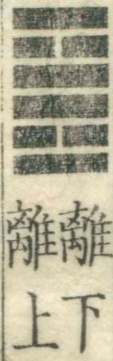 離下
離上